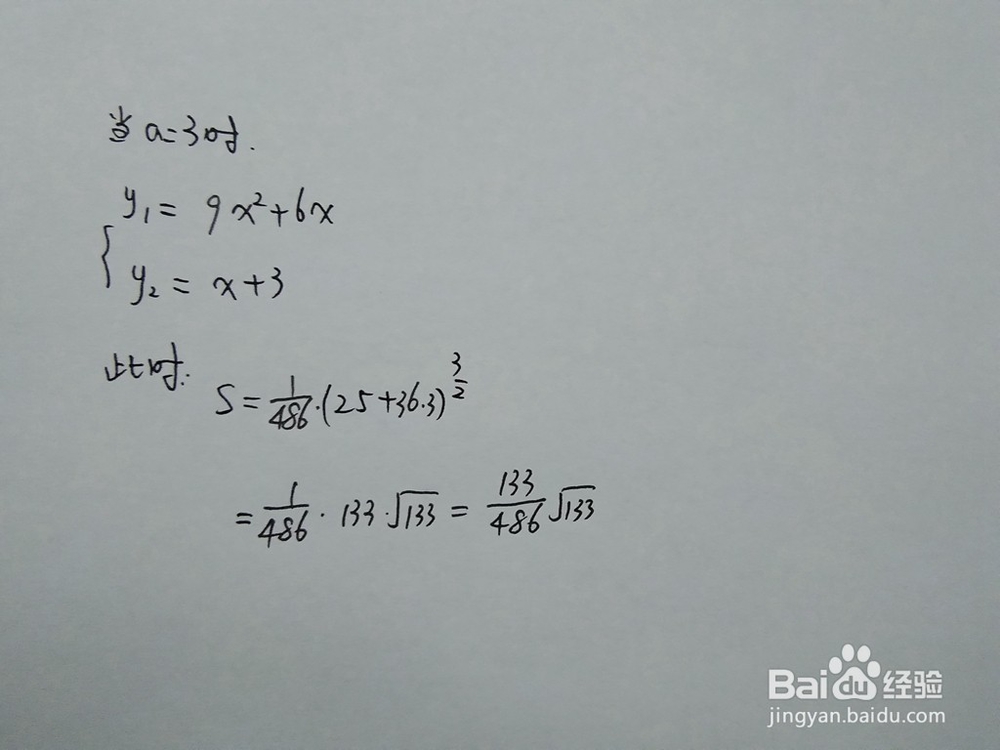 当a=3时.
y₁ = 9x²+6x
{
y₂ = x+3
此时.
S = 1/486·(25+36·3)^(3/2)
= 1/486 · 133·√133 = 133/486 √133
Baidu 经验
jingyan.baidu.com